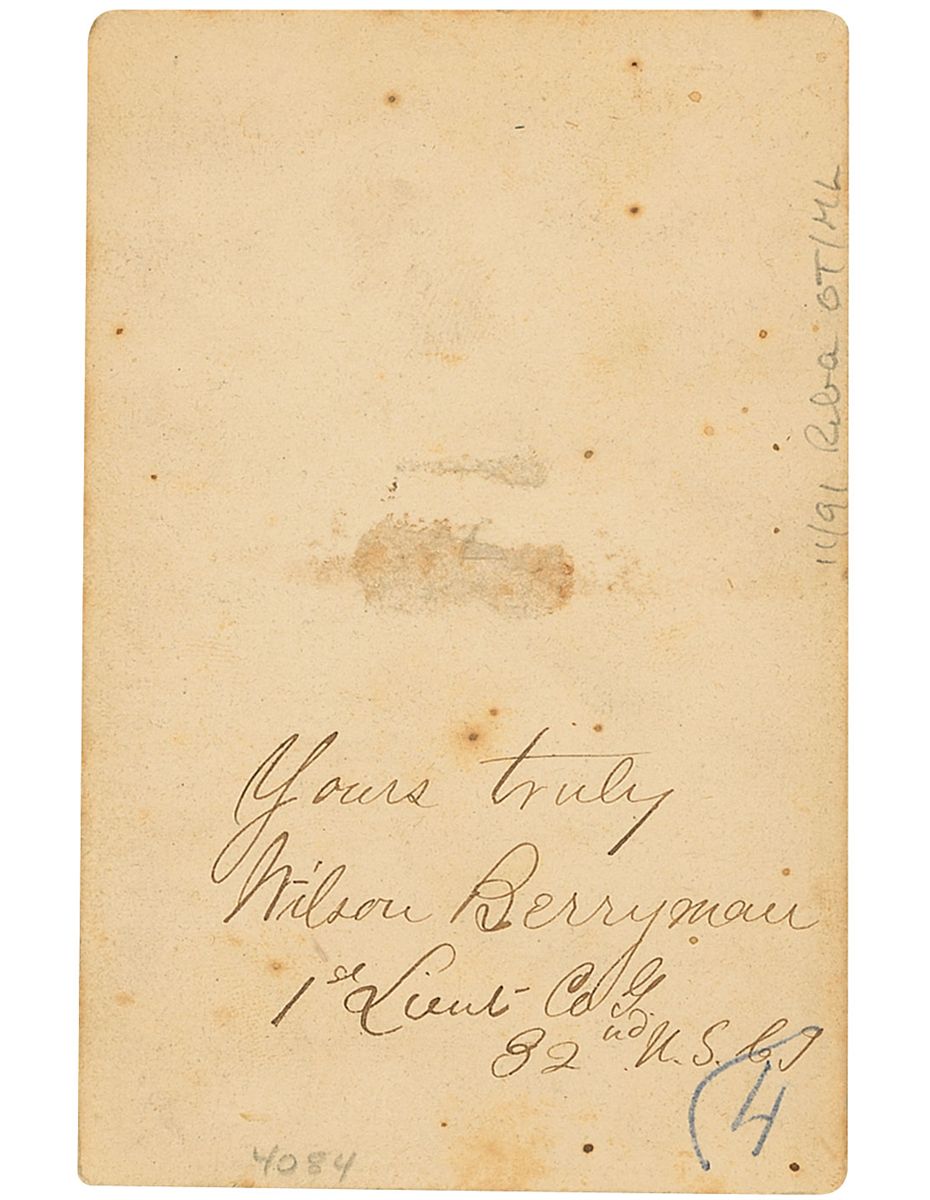 Yours truly
Wilson Berryman
1st Lieut Co G.
32nd U.S.C.T
4
4084
11/91 Reba OT/ML